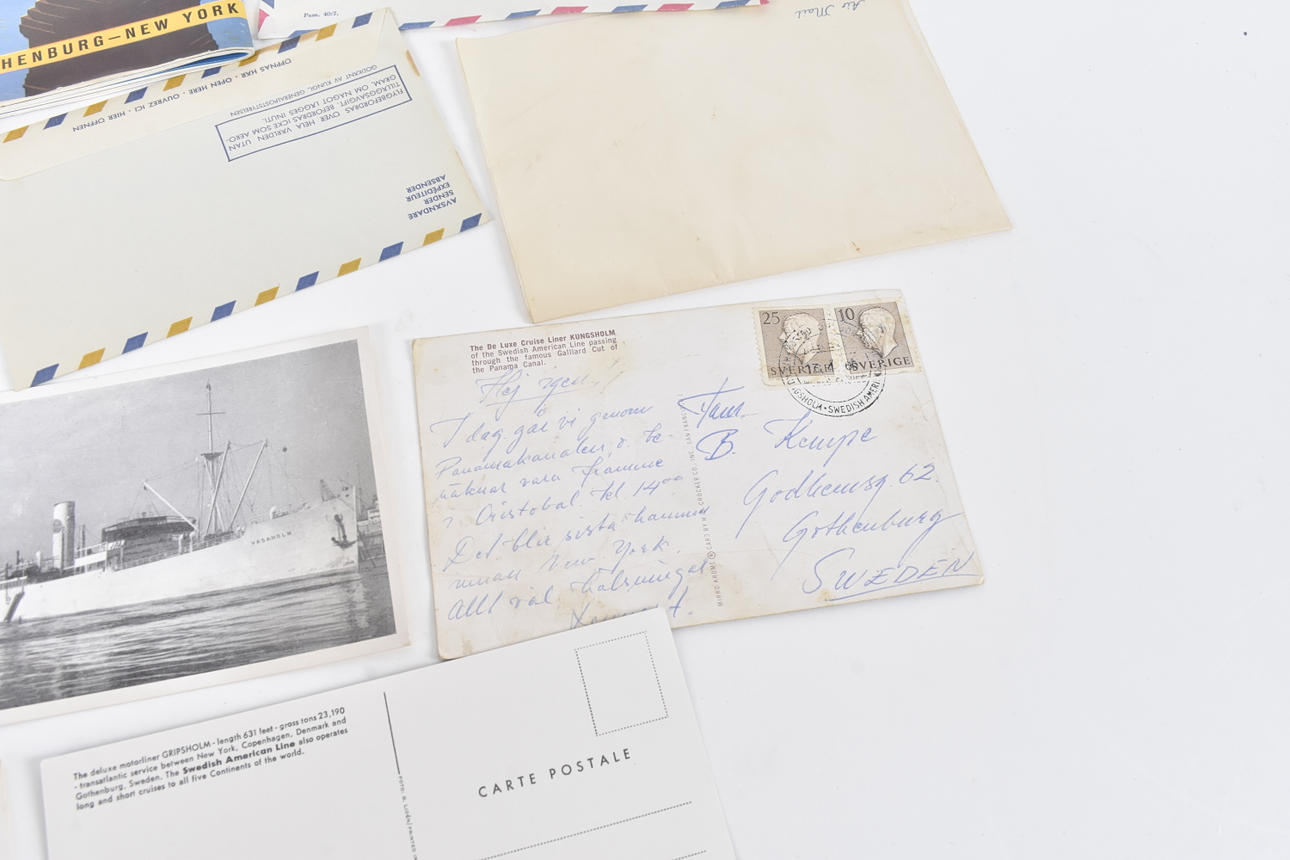 HENBURG–NEW YORK
Pass. 40/2,
Air Mail
ÖPPNAS HÄR · OPEN HERE · OUVREZ ICI · HIER ÖFFNEN
GODKÄNT AV KUNGL. GENERALPOSTSTYRELSEN
FLYGBEFORDRAS ÖVER HELA VÄRLDEN UTAN
TILLÄGGSAVGIFT. BEFORDRAS ICKE SOM AERO-
GRAM, OM NÅGOT LÄGGES INUTI.
AVSÄNDARE
SENDER
EXPÉDITEUR
ABSENDER
VASAHOLM
The De Luxe Cruise Liner KUNGSHOLM
of the Swedish American Line passing
through the famous Galliard Cut of
the Panama Canal.
Hej igen!
I dag går vi genom
Panamakanalen, o. be-
räknar vara framme
i Cristobal kl 14⁰⁰
Det blir sista hamnen
innan New York.
Allt väl hälsningar
25
SVERIGE
10
SVERIGE
17.4
KUNGSHOLM · SWEDISH AMERI
Fam.
B. Kempe
Godhemsg. 62.
Gothenburg
SWEDEN
The deluxe motorliner GRIPSHOLM - length 631 feet - gross tons 23,190
- transatlantic service between New York, Copenhagen, Denmark and
Gothenburg, Sweden. The Swedish American Line also operates
long and short cruises to all five Continents of the world.
CARTE POSTALE